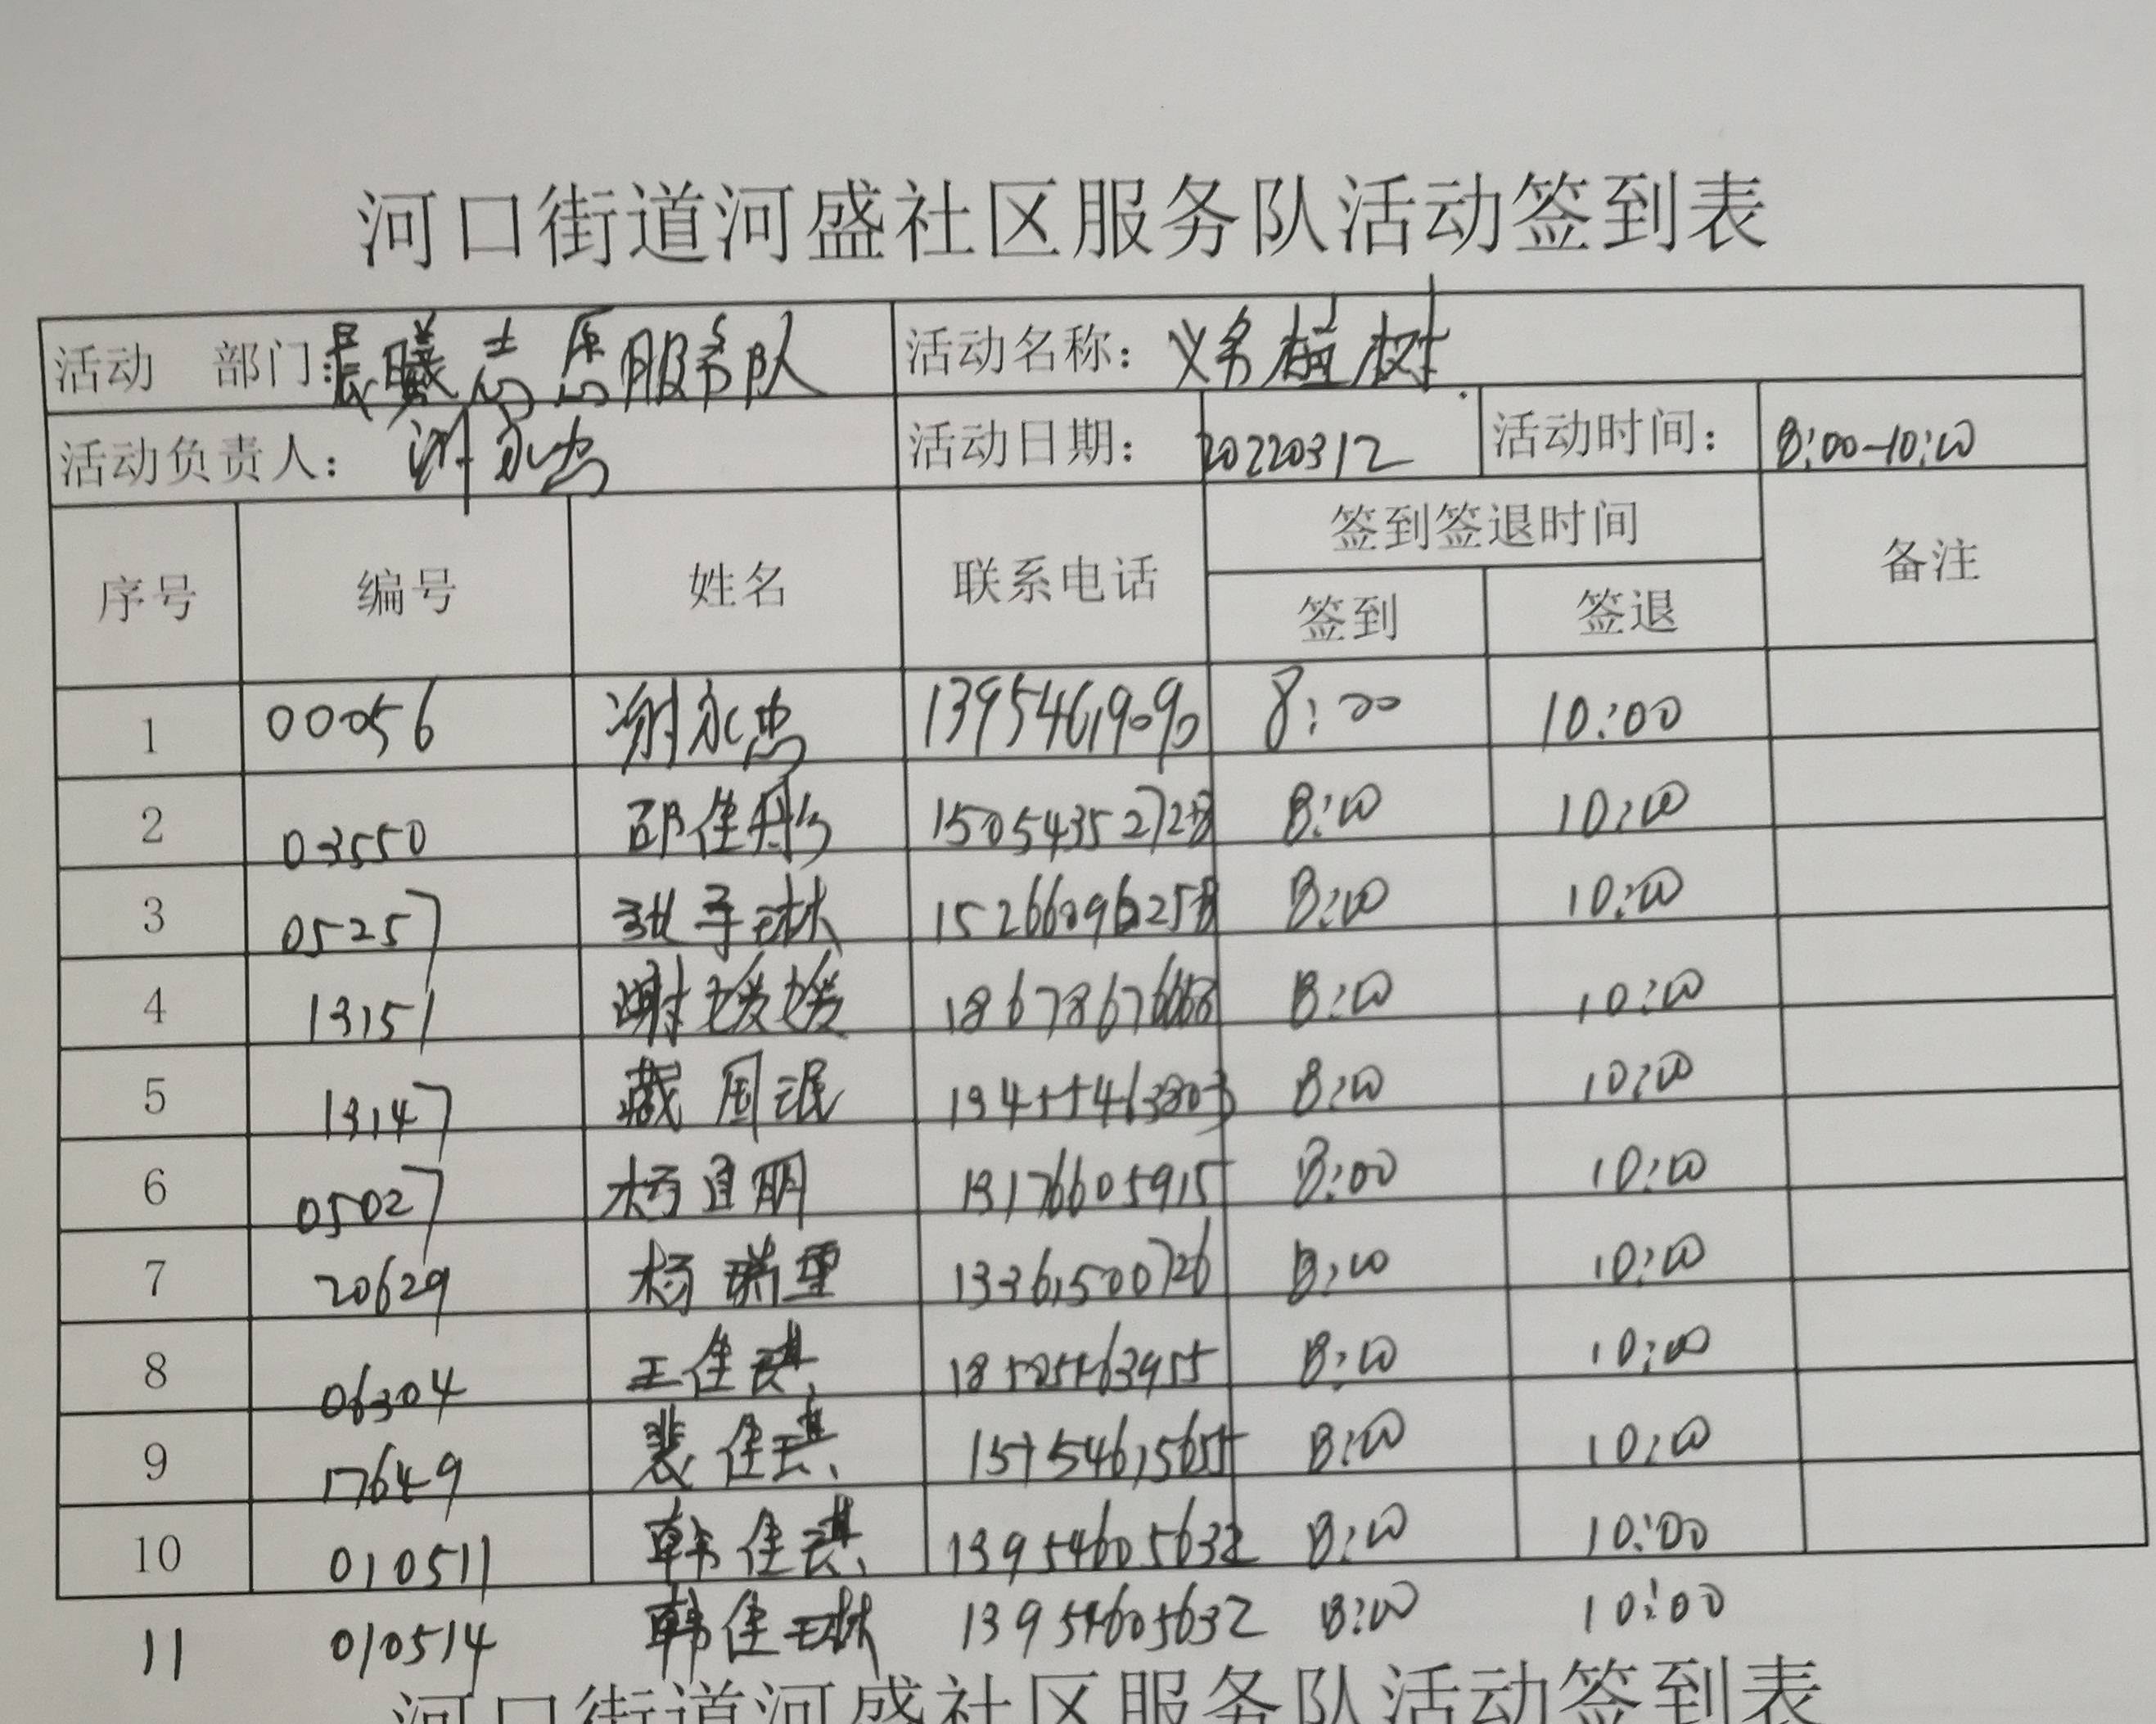 河口街道河盛社区服务队活动签到表
活动 部门:晨曦志愿服务队 活动名称: 义务植树
活动负责人: 谢永忠 活动日期: 20220312 活动时间: 8:00-10:00
序号 编号 姓名 联系电话 签到签退时间 备注
签到 签退
1 00056 谢永忠 13954619090 8:00 10:00
2 03550 邵佳彤 15054352728 8:00 10:00
3 05257 张子琳 15266096258 8:00 10:00
4 13151 谢媛媛 18678676668 8:00 10:00
5 13147 8:00 10:00
6 05027 杨宜明 13176605915 8:00 10:00
7 20629 杨瑞雪 13361500726 8:00 10:00
8 06304 王佳琪 8:00 10:00
9 17649 裴佳琪 8:00 10:00
10 010511 韩佳琪 13954605632 8:00 10:00
11 010514 韩佳琳 13954605632 8:00 10:00
河口街道河盛社区服务队活动签到表